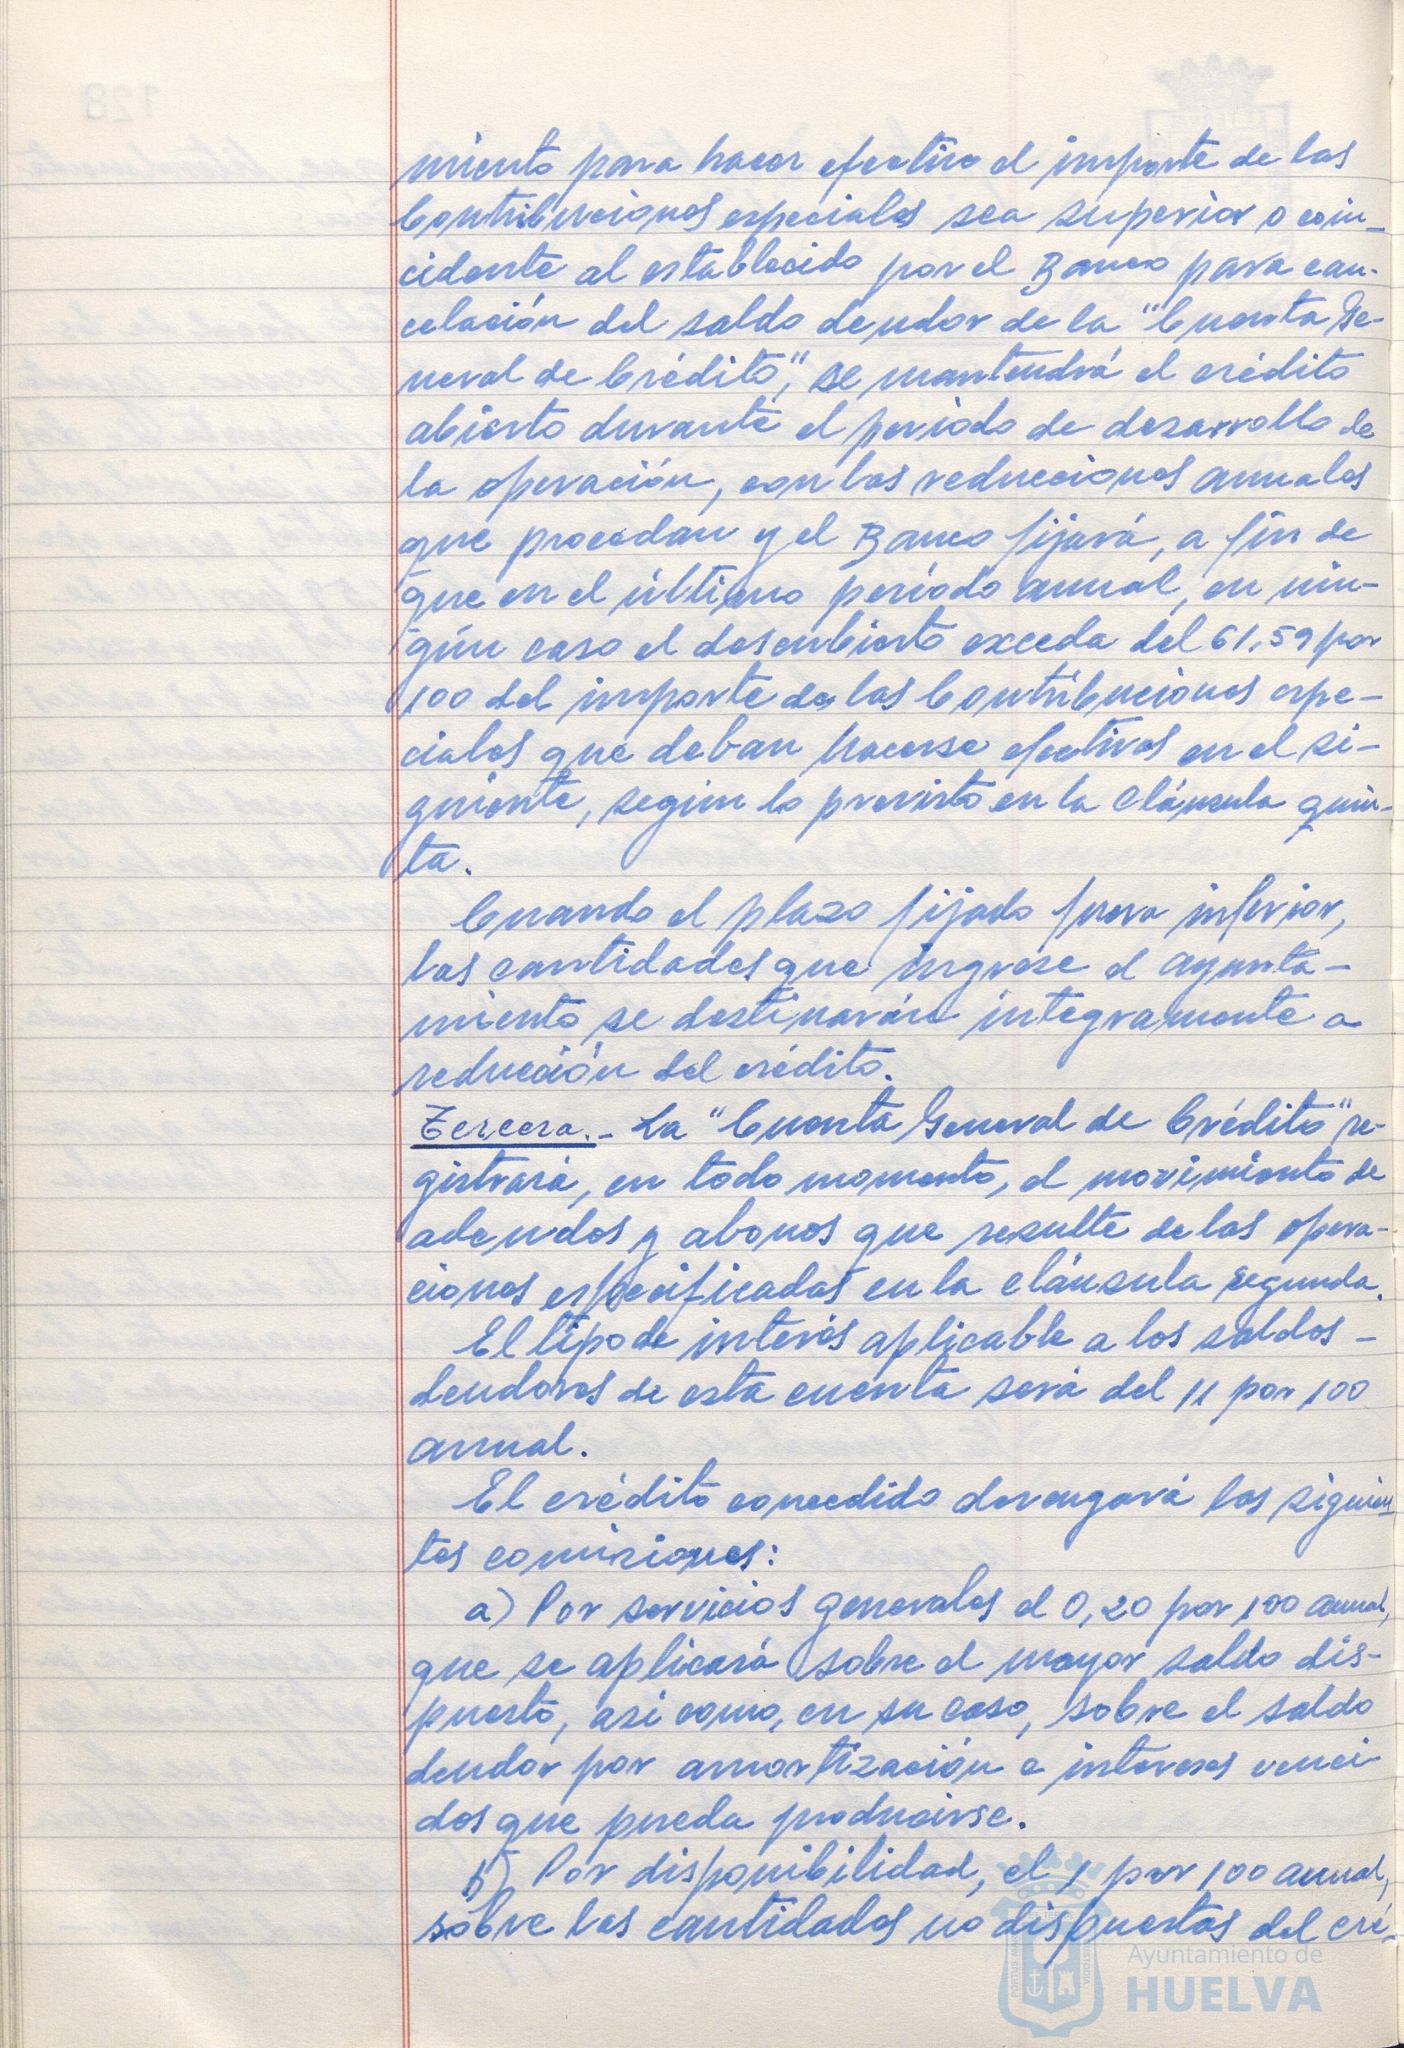 miento para hacer efectivo el importe de las
Contribuciones especiales sea superior o coin-
cidente al establecido por el Banco para can-
celación del saldo deudor de la "Cuenta Ge-
neral de Crédito", se mantendrá el crédito
abierto durante el período de desarrollo de
la operación, con las reducciones anuales
que procedan y el Banco fijará, a fin de
que en el último período anual, en nin-
gún caso el descubierto exceda del 61,59 por
100 del importe de las Contribuciones espe-
ciales que deban hacerse efectivas en el si-
guiente, según lo previsto en la cláusula quin-
ta.
Cuando el plazo fijado fuera inferior,
las cantidades que ingrese el ayunta-
miento se destinarán íntegramente a
reducción del crédito.
Tercera.- La "Cuenta General de Crédito" re-
gistrará, en todo momento, el movimiento de
adeudos y abonos que resulte de las opera-
ciones especificadas en la cláusula segunda.
El tipo de interés aplicable a los saldos -
deudores de esta cuenta será del 11 por 100
anual.
El crédito concedido devengará las siguien-
tes comisiones:
a) Por servicios generales el 0,20 por 100 anual,
que se aplicará sobre el mayor saldo dis-
puesto, así como, en su caso, sobre el saldo
deudor por amortización e intereses venci
dos que pueda producirse.
b) Por disponibilidad, el 1 por 100 anual,
sobre las cantidades no dispuestas del cré-
Ayuntamiento de
HUELVA